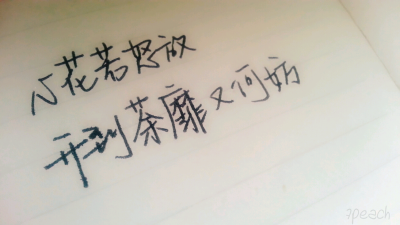 心花若怒放
开到荼靡又何妨
7peach